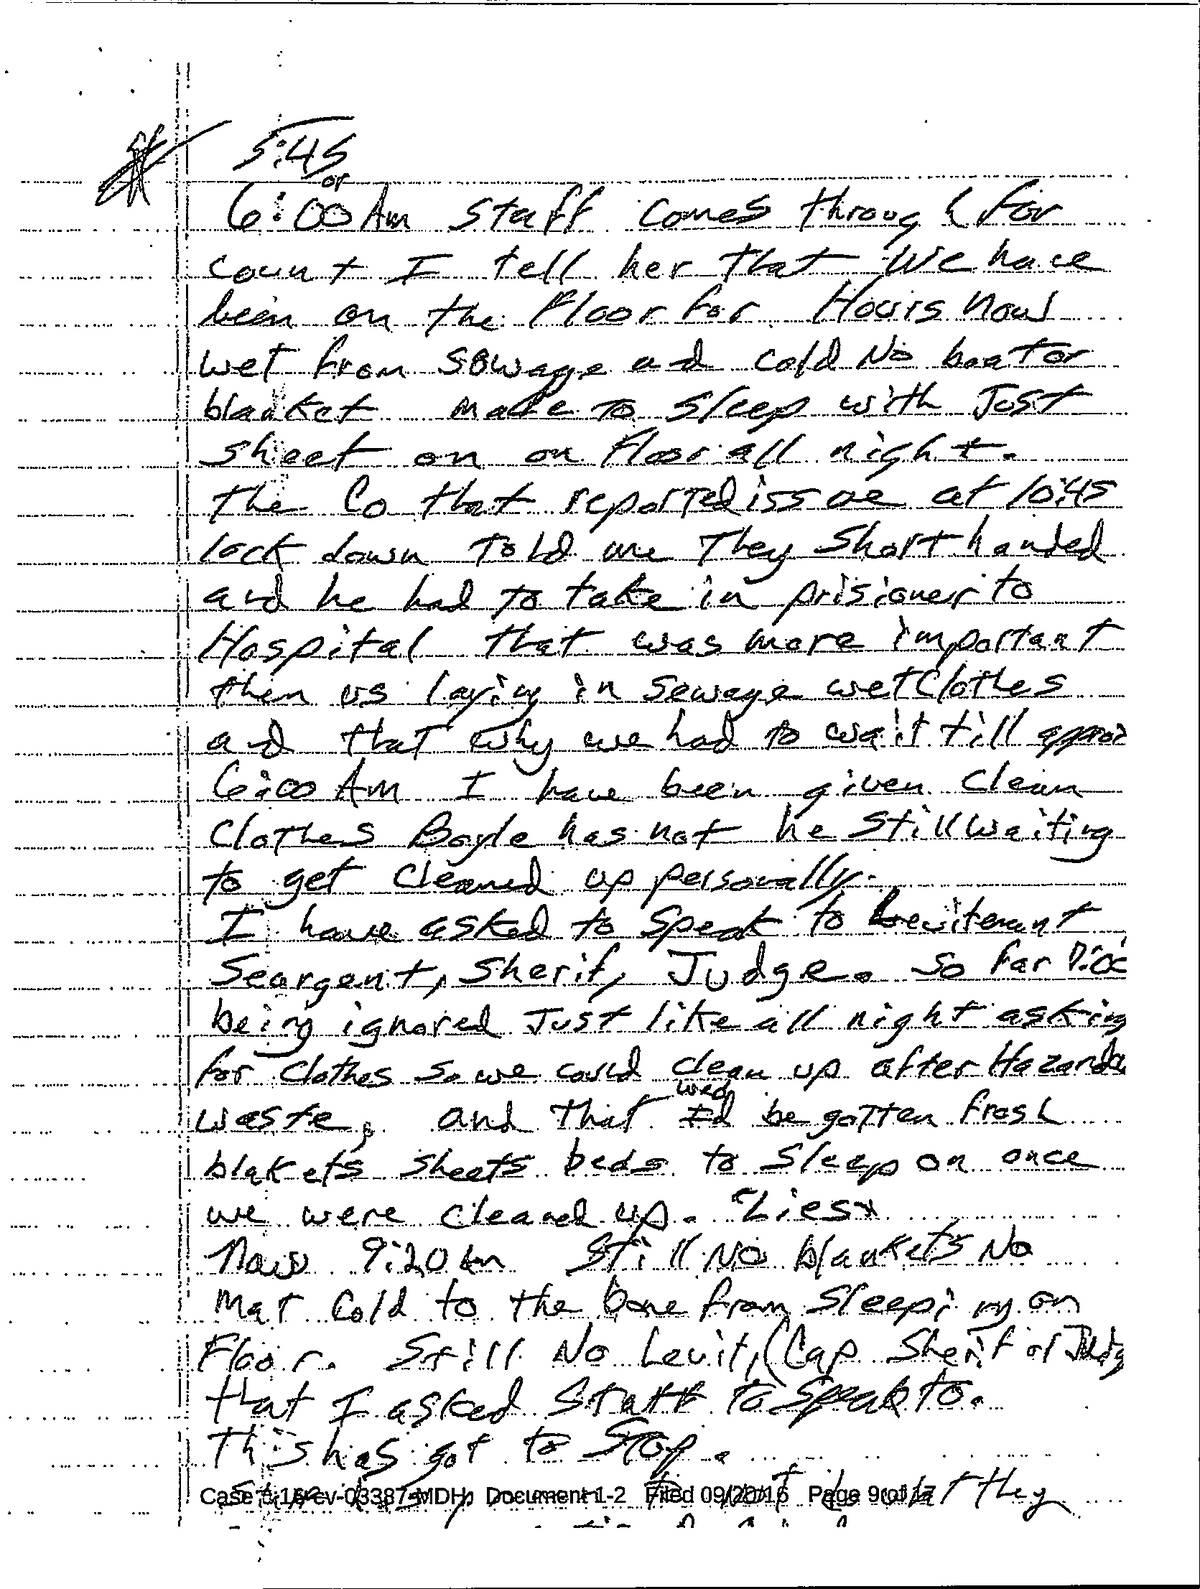 5:45
or
6:00 Am Staff comes through for
count I tell her that We have
been on the Floor for Hours now
wet from SBwage and cold No
blanket made to sleep with Just
sheet on on Floor all night.
the Co that reported issue at 10:45
lock down told me They Short handed
and he had to take in prisioner to
Hospital that was more important
then us laying in sewage wet Clothes
and that why we had to wait till approx
6:00 Am I have been given Clean
Clothes Boyle has not he Still waiting
to get cleaned up personally.
I have asked to Speak to Lewitenant
Seargent, Sherif, Judge. So Far
being ignored Just like all night asking
for clothes so we could clean up after Hazardu
waste, and that wed be gotten fresh
blakets sheets beds to Sleep on once
we were cleaned up. "Lies"
Now 9:20 Am Still No blankets No
Mat Cold to the bone from sleeping on
Floor. Still No Levit, (Cap Sherif or Judg
that I asked Staff to Speak to.
This has got to Stop.
they
Case 6:16-cv-03387-MDH Document 1-2 Filed 09/20/16 Page 9 of 17